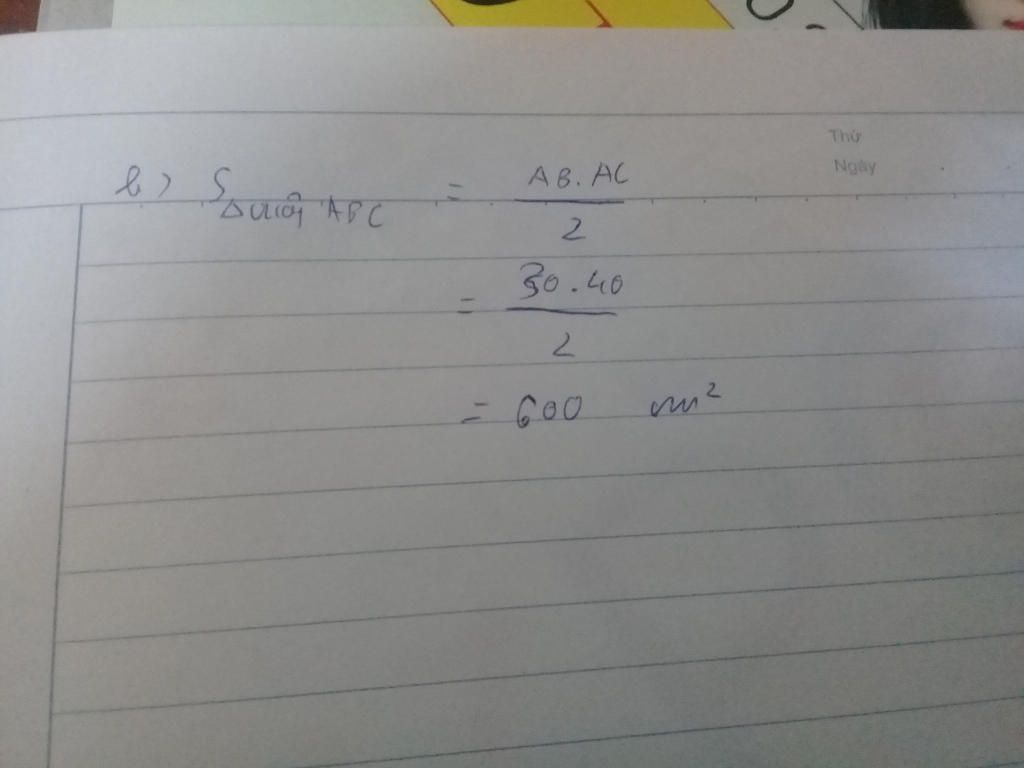 Thứ
Ngày
b) S Δvuông ABC = AB.AC / 2
= 30.40 / 2
= 600 cm²